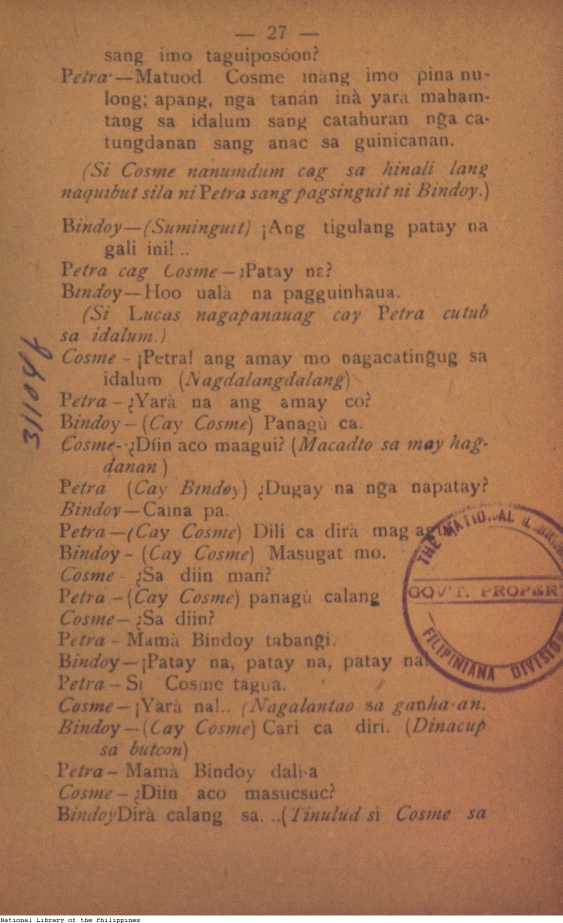 — 27 —
sang imo taguiposóon?
Petra—Matuod Cosme mang imo pina nu-
long; apang, nga tanán inà yara maham-
tang sa idalum sang catahuran nga ca-
tungdanan sang anac sa guinicanan.
(Si Cosme nanumdum cag sa hinali lang
naquibut sila ni Petra sang pagsinguit ni Bindoy.)
Bindoy—(Suminguit) ¡Ang tigulang patay na
gali ini!..
Petra cag Cosme—¡Patay na?
Bindoy—Hoo ualà na pagguinhaua.
(Si Lucas nagapanauag cay Petra cutub
sa idalum.)
Cosme - ¡Petra! ang amay mo nagacatingug sa
idalum (Nagdalangdalang)
Petra—¿Yarà na ang amay co?
Bindoy—(Cay Cosme) Panagù ca.
Cosme-¿Diin aco maagui? (Macadto sa may hag-
danan)
Petra (Cay Bindoy) ¿Dugay na nga napatay?
Bindoy—Caina pa.
Petra—(Cay Cosme) Dili ca dirà mag
Bindoy - (Cay Cosme) Masugat mo.
Cosme - ¿Sa diin man?
Petra—(Cay Cosme) panagù calang
Cosme—¿Sa diin?
Petra - Mamà Bindoy tabangi.
Bindoy—¡Patay na, patay na, patay na
Petra—Si Cosme tagua.
Cosme—¡Yarà na!.. (Nagalantao sa ganha-an.
Bindoy—(Cay Cosme) Cari ca diri. (Dinacup
sa butcon)
Petra—Mamà Bindoy
Cosme—¿Diin aco masucsuc?
BindoyDirà calang sa...(Tinulud si Cosme sa
THE NATIONAL
GOV'T. PROPERT
FILIPINIANA DIVISION
National Library of the Philippines